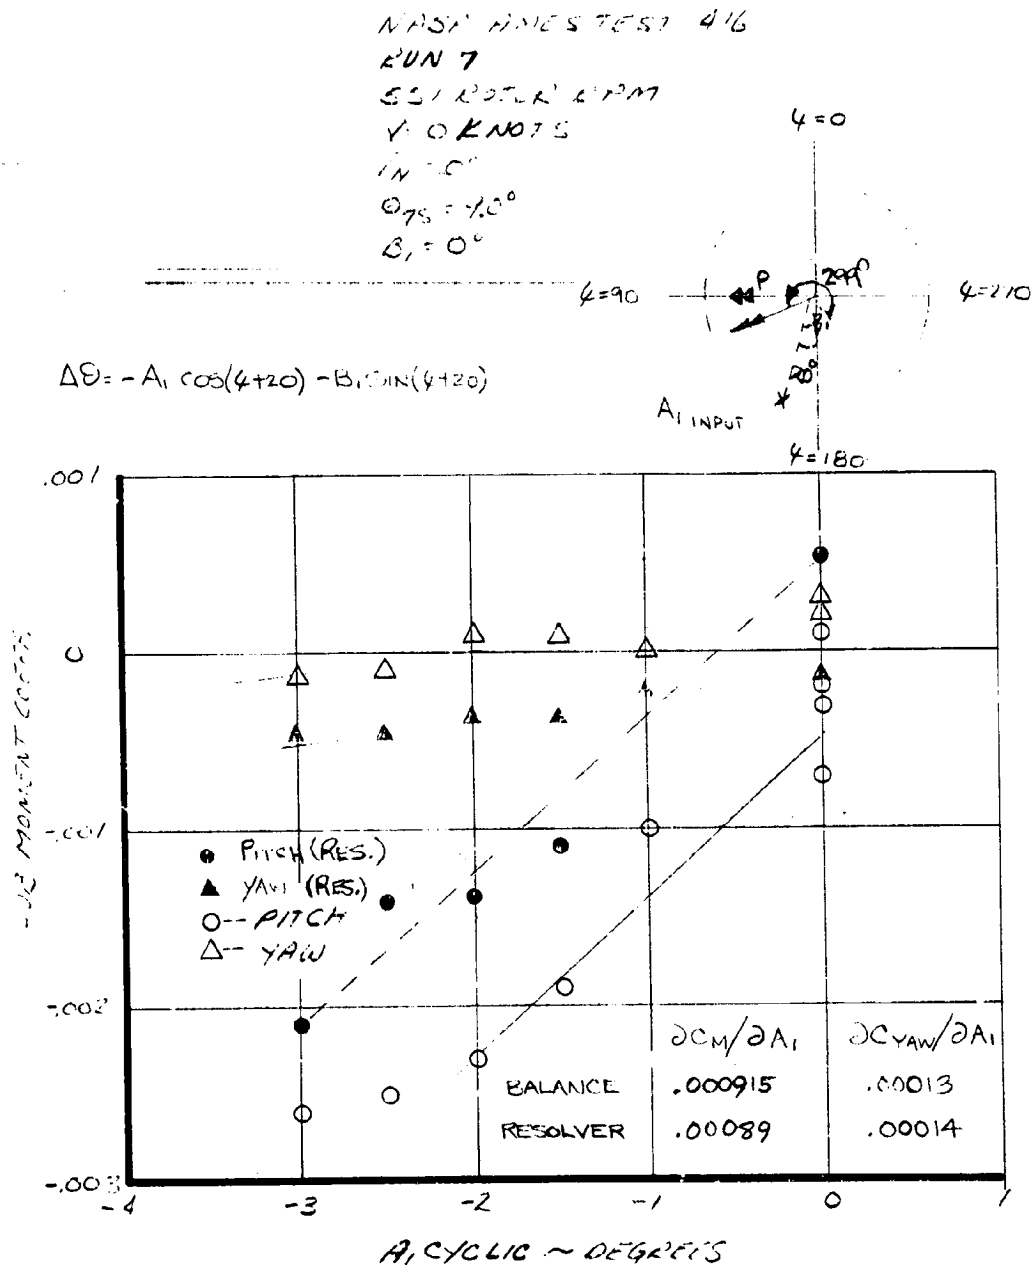 NASA AMES TEST 416
RUN 7
551 ROTOR RPM
V = 0 KNOTS
iN = 0°
Θ75 = 4.0°
B1 = 0°
ψ=0
299°
P
ψ=90
ψ=270
ΔΘ = -A1 COS(ψ+20) - B1 SIN(ψ+20)
8°
A1 INPUT
ψ=180
.001
0
-.001
-.002
-.003
MOMENT COEFF.
● PITCH (RES.)
▲ YAW (RES.)
○-- PITCH
△-- YAW
∂CM/∂A1 ∂CYAW/∂A1
BALANCE .000915 .00013
RESOLVER .00089 .00014
-4 -3 -2 -1 0 1
A1 CYCLIC ~ DEGREES